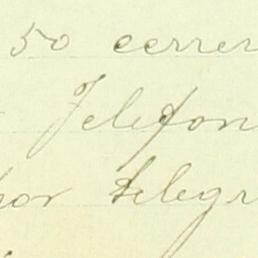 50 cerrer
Telefon
por telegr